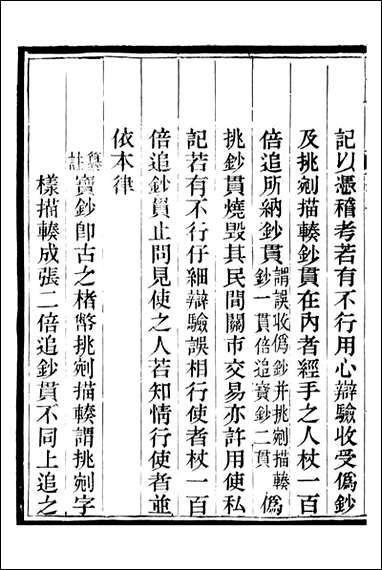 記以憑稽考若有不行用心辯驗收受僞鈔
及挑剜描輳鈔貫在內者經手之人杖一百
倍追所納鈔貫謂誤收僞鈔并挑剜描輳鈔一貫倍追寶鈔二貫僞
挑鈔貫燒毀其民間關市交易亦許用使私
記若有不行仔細辯驗誤相行使者杖一百
倍追鈔貫止問見使之人若知情行使者並
依本律
纂註寶鈔卽古之楮幣挑剜描輳謂挑剜字
樣描輳成張二倍追鈔貫不同上追之